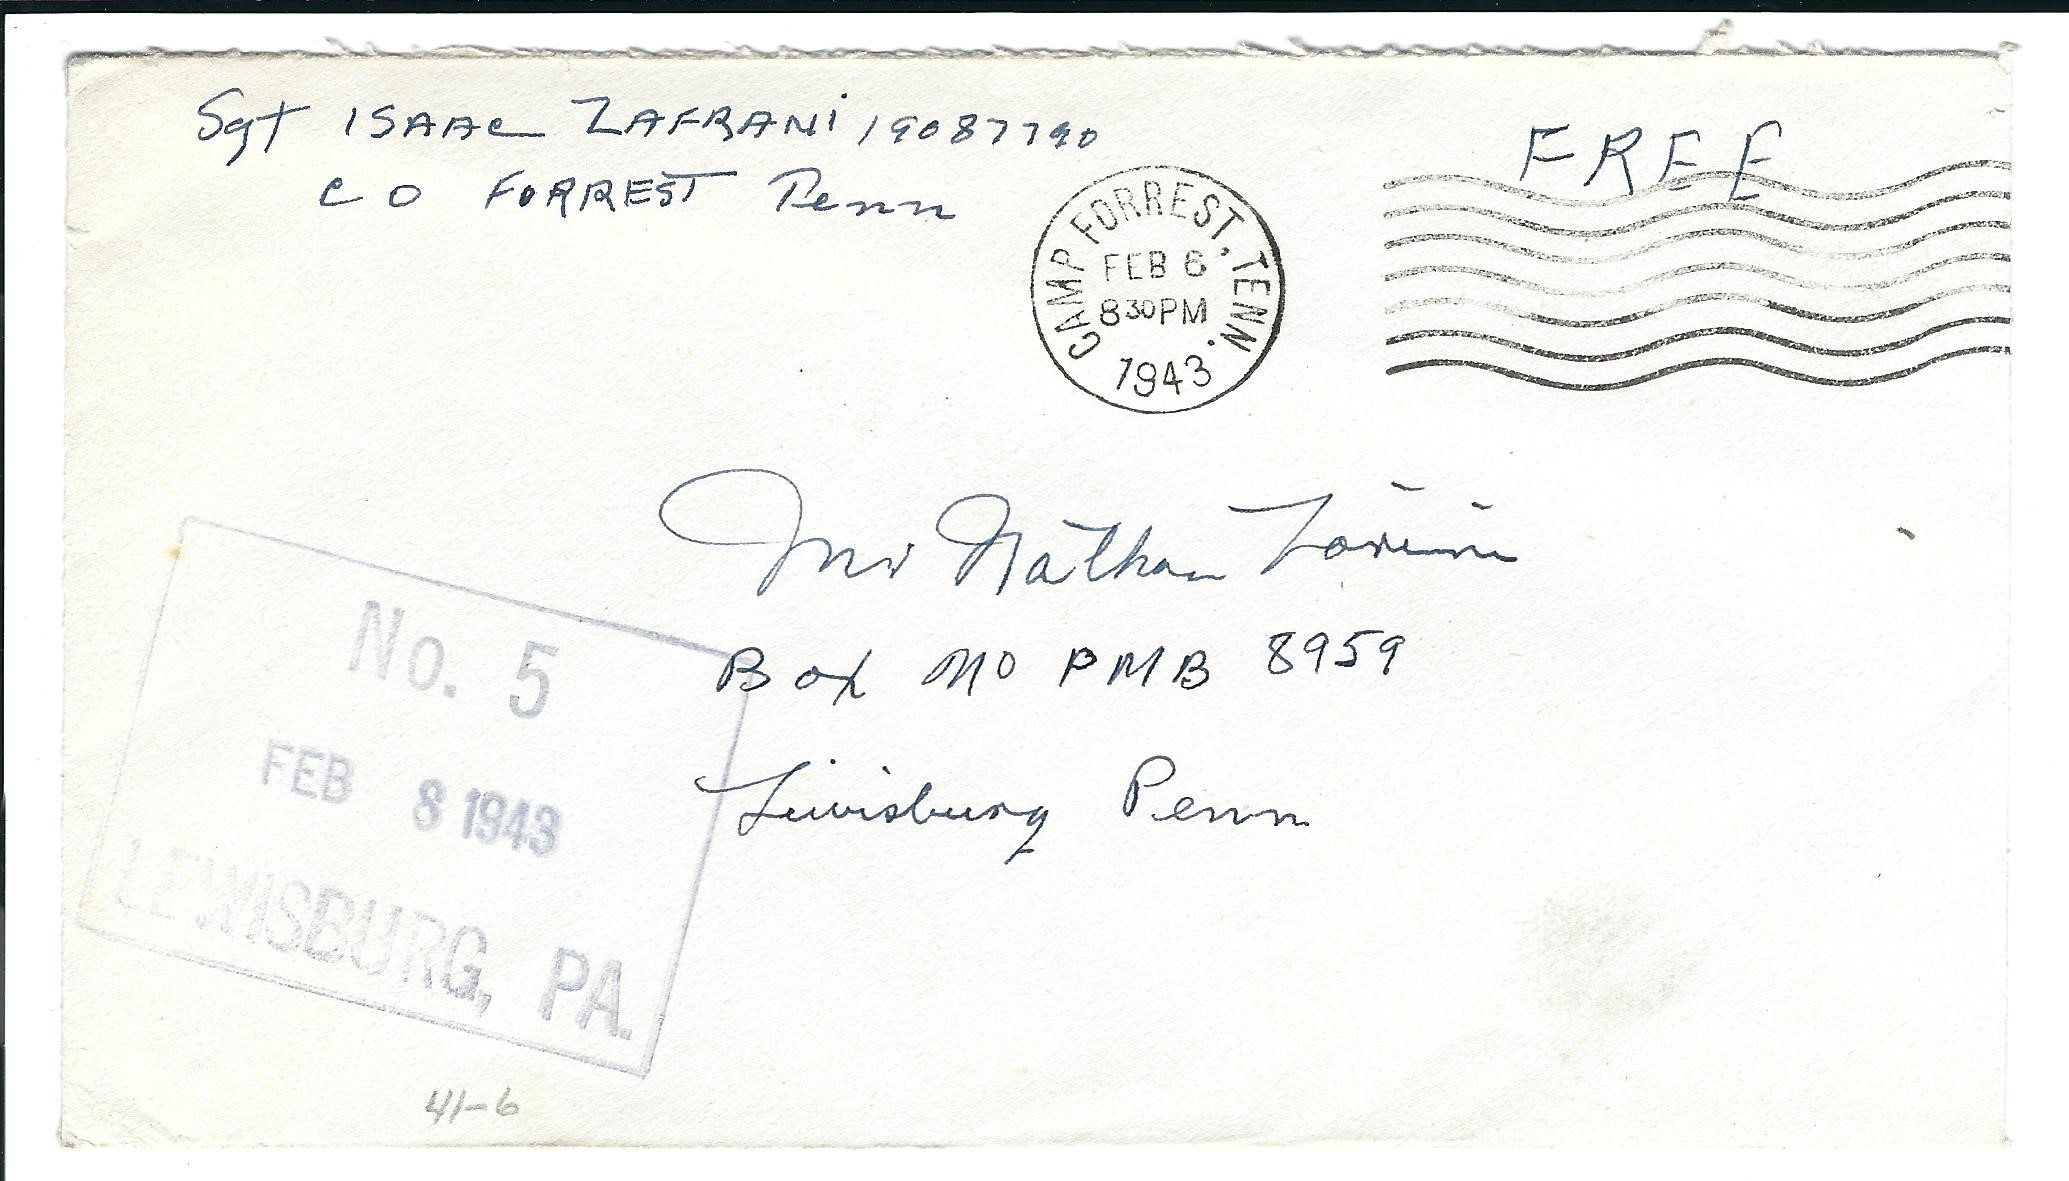 Sgt ISAAC ZAFRANI 19087790
C O FORREST Penn
FREE
CAMP FORREST, TENN.
FEB 6
8 30 PM
1943
Mr Nathan
Box No PMB 8959
Lewisburg Penn
No. 5
FEB 8 1943
LEWISBURG, PA.
41-6